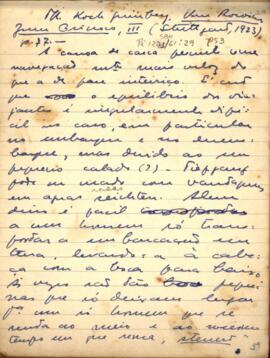 Th. Koch Grünberg, Vom Roroima
zum Orinoco, III (Stuttgart, 1923)
p. 77 -
A canoa de casca permite uma
navegação mto mais veloz do
que a de pau inteiriço. É certo
que o equilíbrio do via-
jante é singularmente difí-
cil na canoa, em particular
no embarque e no desem-
barque, mas devido ao seu
pequeno calado (?). Tiefgang
pode ser usado com vantagem
em aguas seichten. Alem
disso é facil
a um homem só trans-
portar a embarcação em
terra, levando-a à cabe-
ça com a boca para baixo.
Às vezes são tão peque-
nas que só deixam lugar
para um só homem que se
senta ao meio e ao mesmo
tempo em que rema,